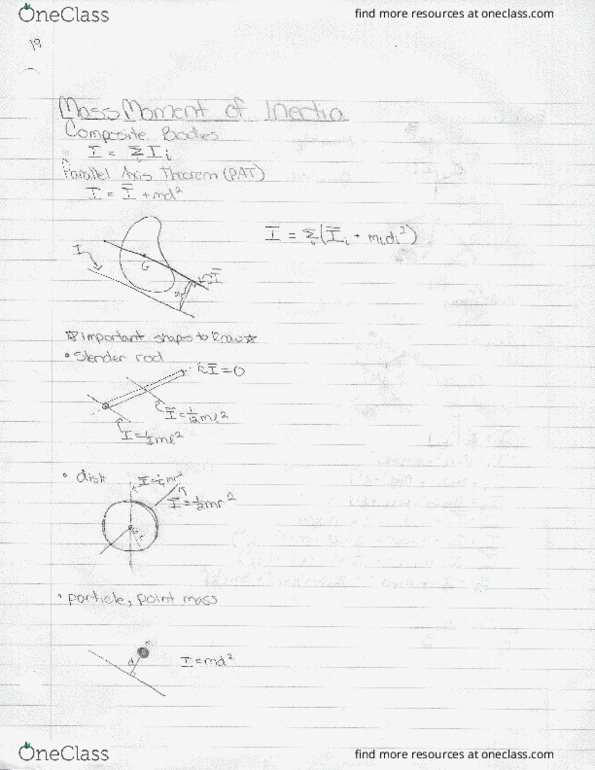 OneClass
find more resources at oneclass.com
19
Mass Moment of Inertia
Composite Bodies
I = Σ Iᵢ
Parallel Axis Theorem (PAT)
I = Ī + md²
I = Σᵢ(Īᵢ + mᵢdᵢ²)
I
G
Ī
☆Important shapes to know☆
• Slender rod
I = 0
Ī = 1/12 ml²
• disk
Ī = 1/4 mr²
Ī = 1/2 mr²
r
• particle, point mass
d
I = md²
OneClass
find more resources at oneclass.com